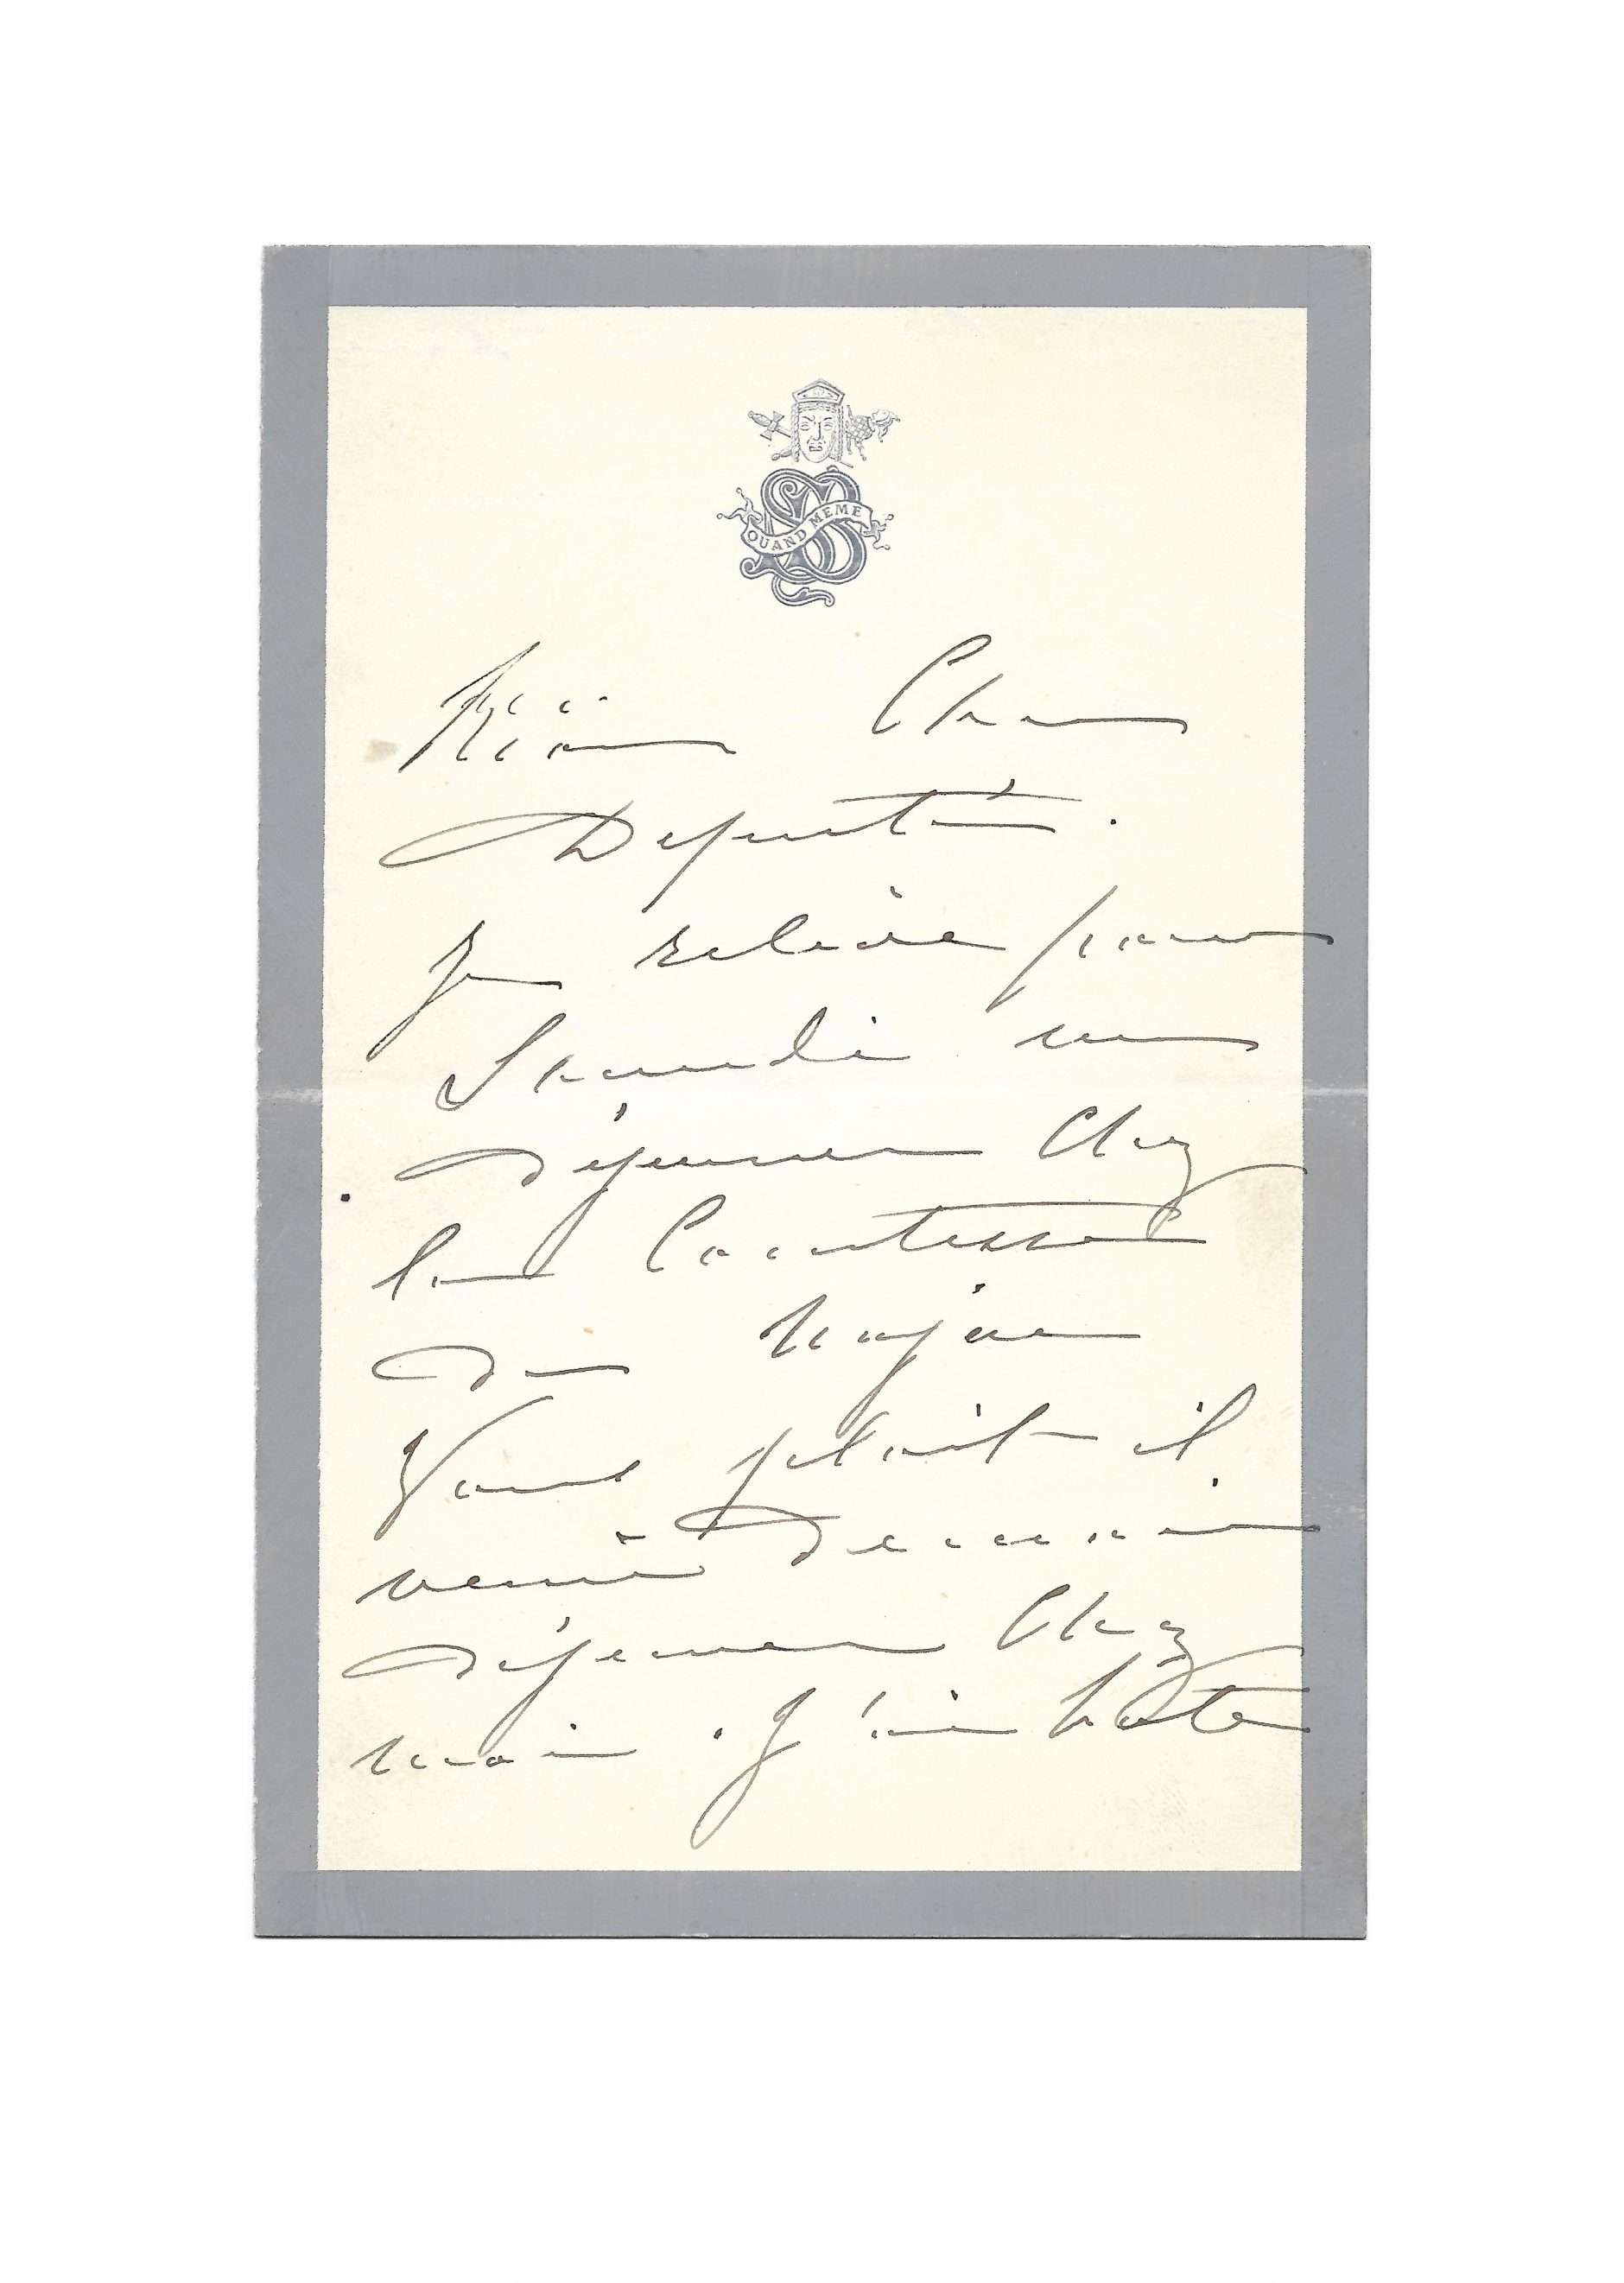 QUAND MEME
Mon Cher
Député.
Je relève pour
Samedi un
Déjeuner Chez
la Comtesse
de
Vous plait il
venir Demain
Déjeuner Chez
moi. J'ai hate